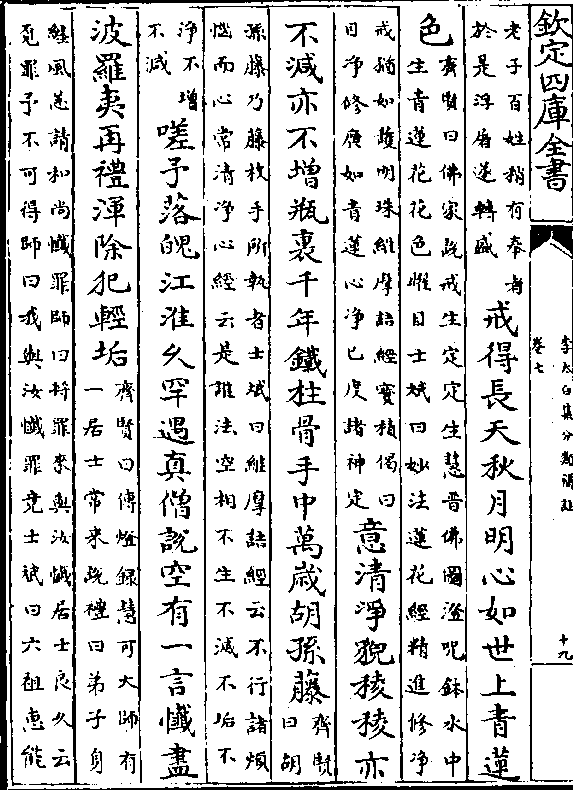 欽定四庫全書
李太白集分類補註
卷七
十九
老子百姓稍有奉者
於是浮屠遂轉盛
戒得長天秋月明心如世上青蓮
色
齊賢曰佛家說戒生定定生慧晉佛圖澄呪鉢水中
生青蓮花花色耀目士贇曰妙法蓮花經精進修淨
戒猶如護明珠維摩詰經寳積偈曰
目淨修廣如青蓮心淨已度諸禪定
意清淨貌稜稜亦
不減亦不增瓶裏千年鐵柱骨手中萬歲胡孫藤
齊賢
曰胡
孫藤乃藤杖手所執者士贇曰維摩詰經云不行諸煩
惱而心常清淨心經云是諸法空相不生不滅不垢不
淨不增
不減
嗟予落魄江淮久罕遇真僧說空有一言懺盡
波羅夷再禮渾除犯輕垢
齊賢曰傳燈録慧可大師有
一居士常來設禮曰弟子身
纏風恙請和尚懺罪師曰將罪來與汝懺居士良久云
覓罪了不可得師曰我與汝懺罪竟士贇曰六祖惠能